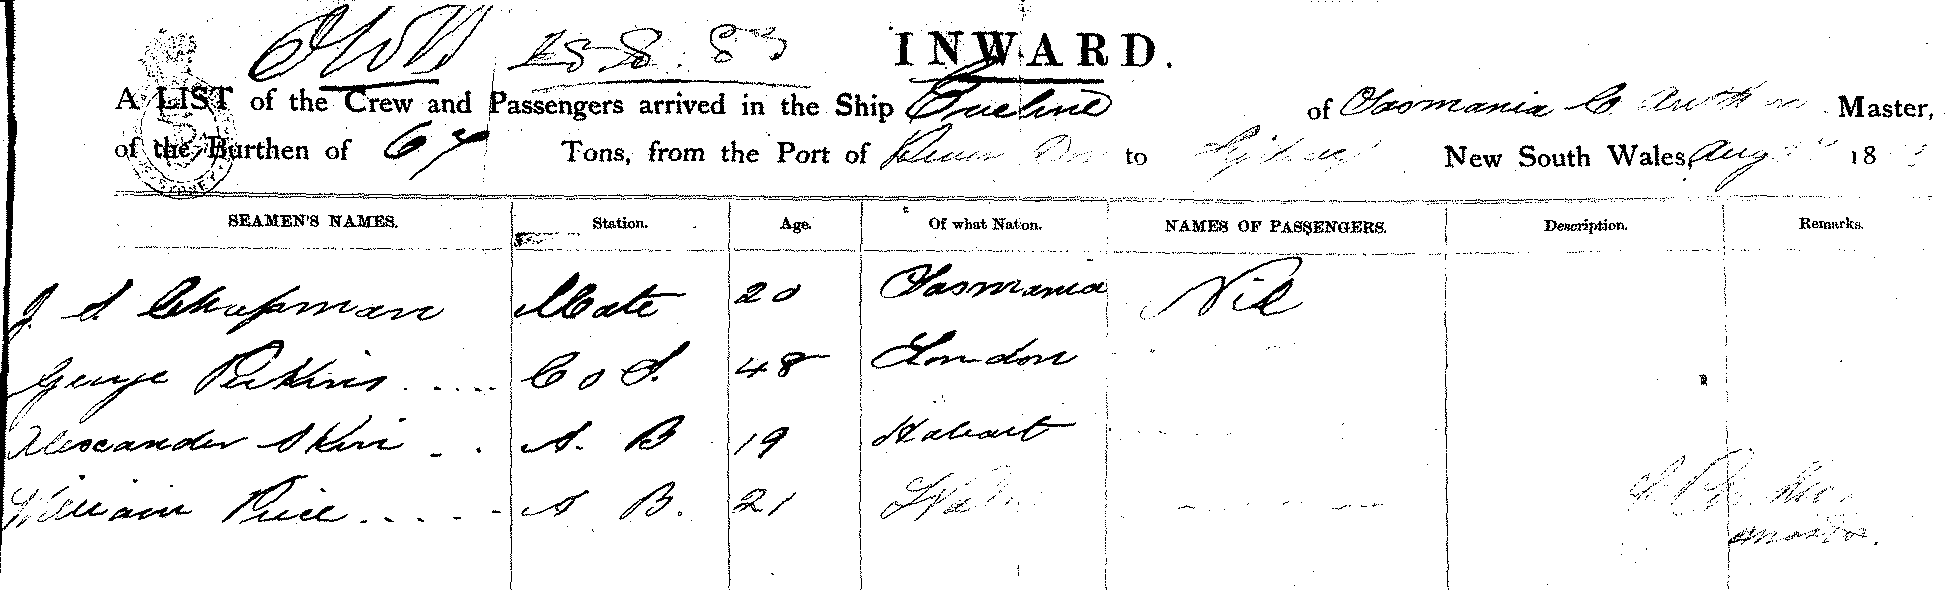 25-8.83 INWARD.
A LIST of the Crew and Passengers arrived in the Ship Eveline of Tasmania C. Master,
of the Burthen of 67 Tons, from the Port of to Sydney New South Wales, Aug 18
SEAMEN'S NAMES. Station. Age. Of what Nation. NAMES OF PASSENGERS. Description. Remarks.
J. S Chapman Mate 20 Tasmania Nil
George Perkins C & S. 48 London
Alexander Skin A. B 19 Hobart
William Price A B. 21
Master.